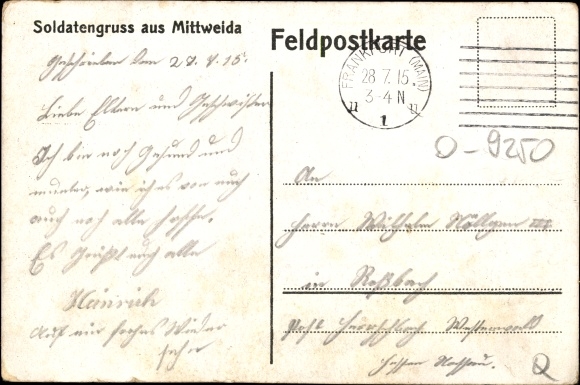 Soldatengruss aus Mittweida
Feldpostkarte
Geschrieben den 27. 7. 15.
Liebe Eltern und Geschwister
Ich bin noch Gesund und
munter, wie ich es von euch
auch noch alle hoffe.
Es Grüßt euch alle
Heinrich
Auf ein frohes Wieder
sehn
FRANKFURT (MAIN)
28.7.15.
3-4 N
n 1 n
O-9250
An
Herrn Wilhelm III
in Roßbach
Post Westerwald
Hessen Nassau.
Q